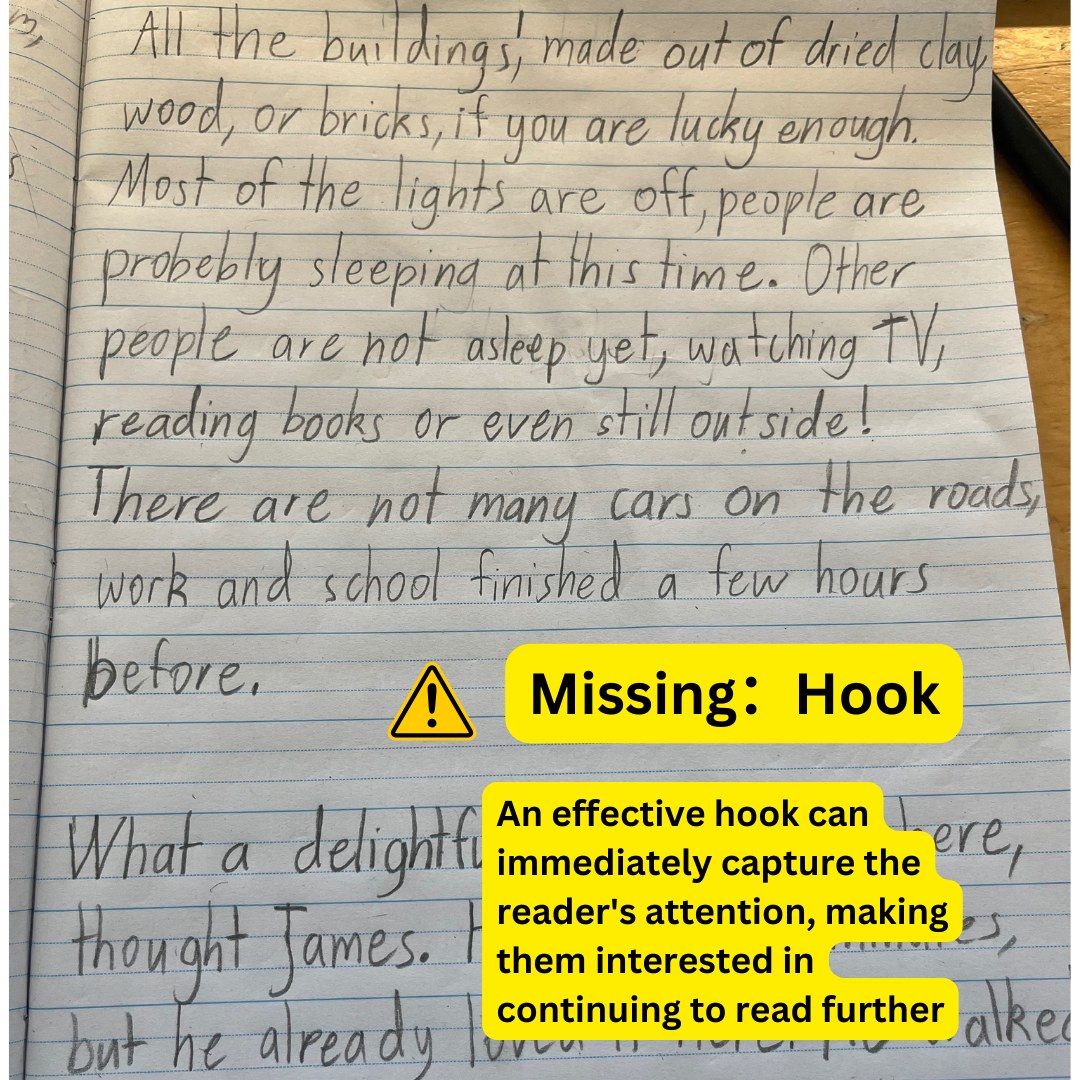 All the buildings, made out of dried clay,
wood, or bricks, if you are lucky enough.
Most of the lights are off, people are
probebly sleeping at this time. Other
people are not asleep yet, watching TV,
reading books or even still outside!
There are not many cars on the roads,
work and school finished a few hours
before.
Missing: Hook
What a
thought James.
but he already
An effective hook can
immediately capture the
reader's attention, making
them interested in
continuing to read further